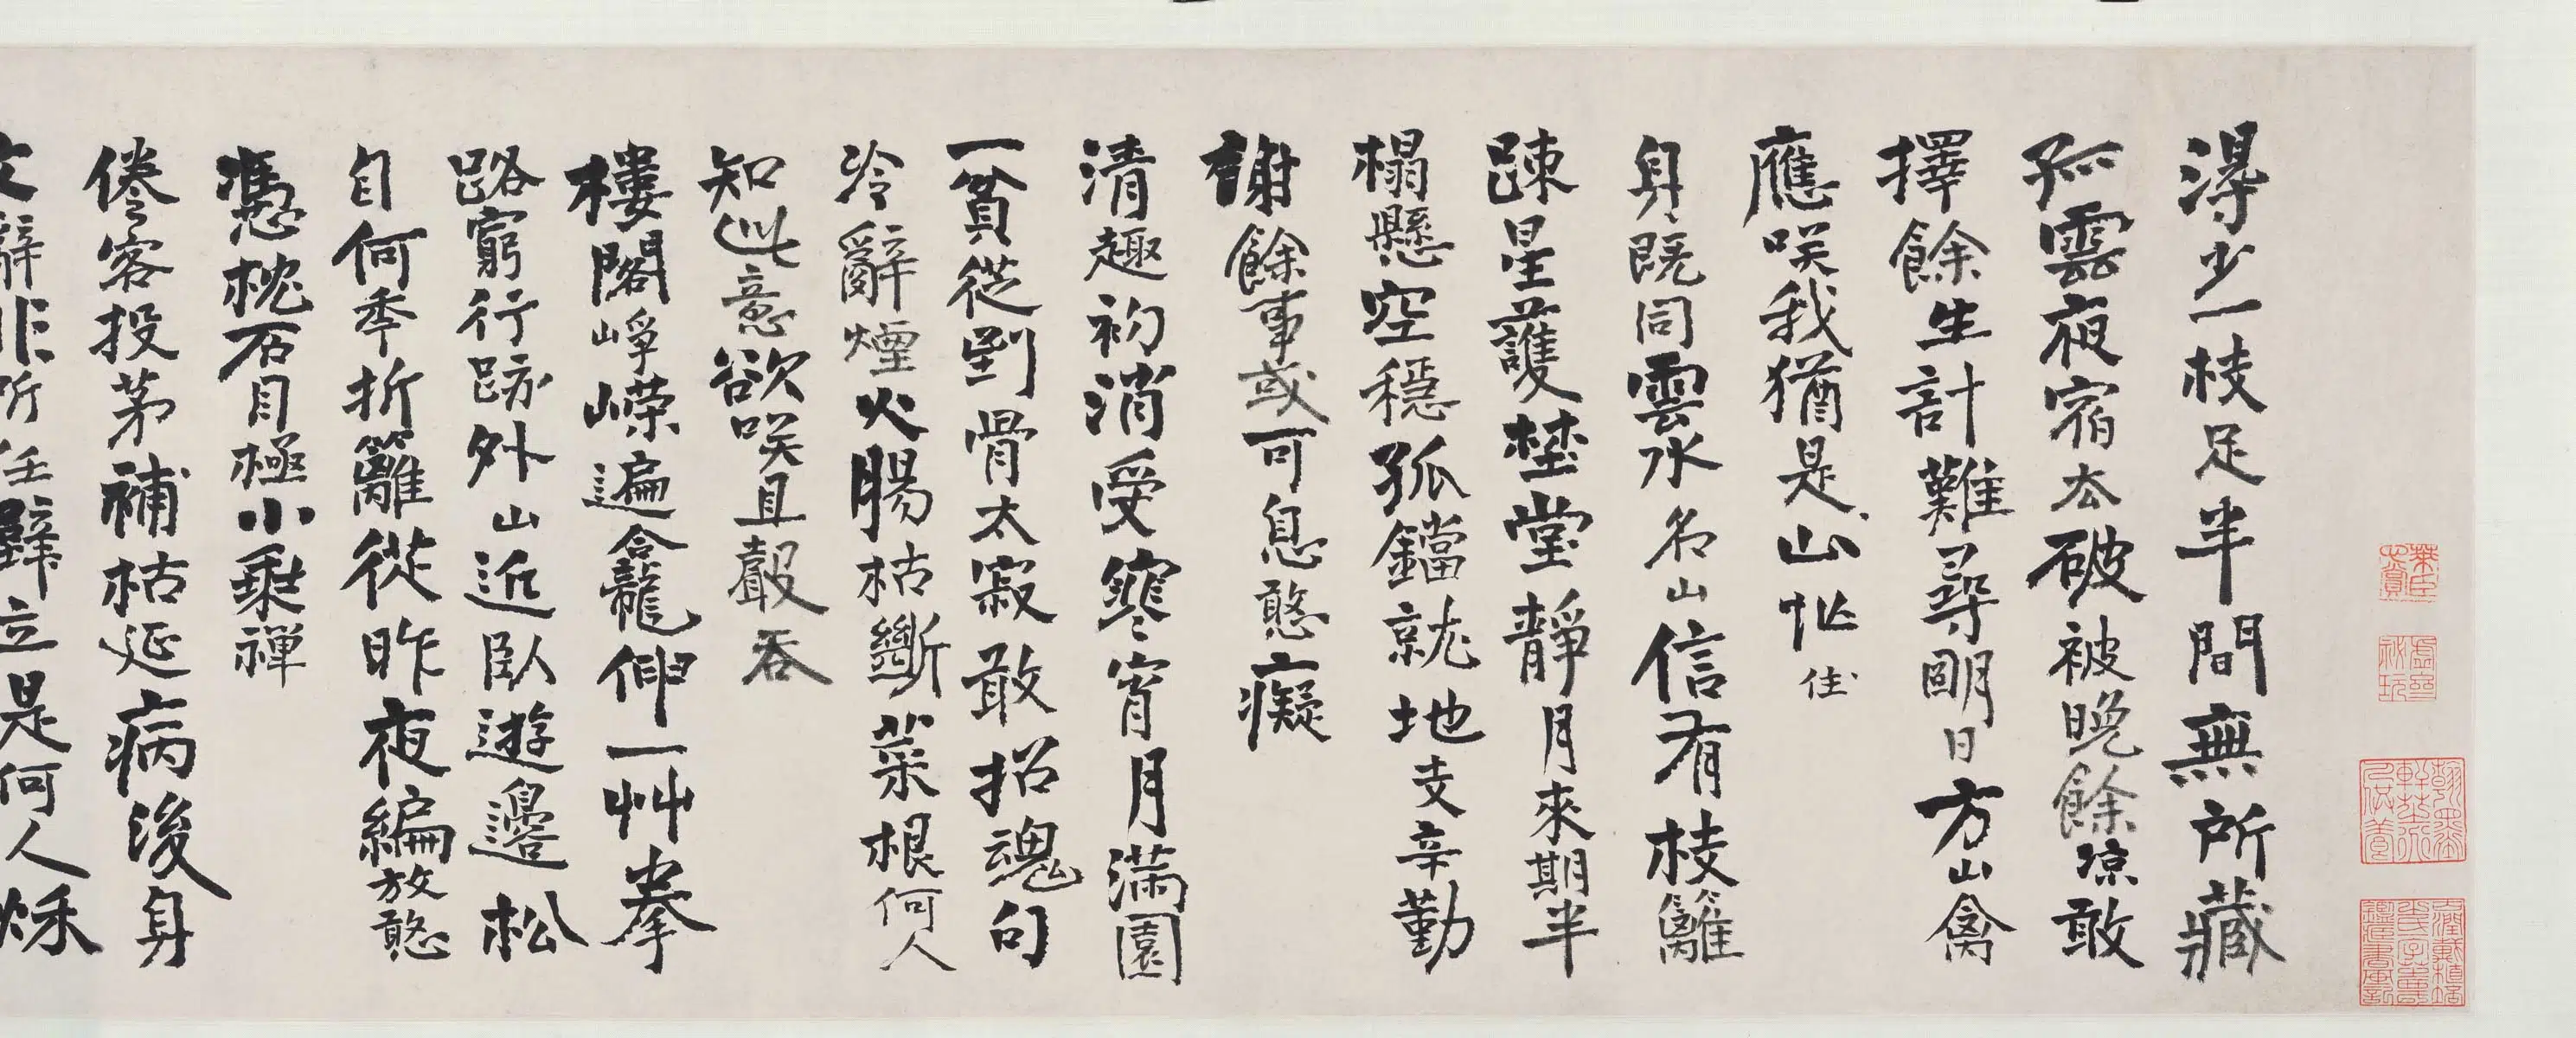 得少一枝足半間無所藏
孤雲夜宿去破被晚餘涼敢
擇餘生計難尋明日方山禽
應咲我猶是山忙住
身既同雲水名山信有枝籬
疎星護埜堂靜月來期半
榻懸空穩孤鐺就地支辛勤
謝餘事或可息憨癡
清趣初消受寒宵月滿園
一貧從到骨太寂敢招魂句
冷辭煙火腸枯斷菜根何人
知此意欲咲且聲吞
樓閣崢嶸遍龕龍仰一艸拳
路窮行跡外山近臥遊邊松
自何季折籬從昨夜編放憨
憑枕石目極小乘禪
倦客投茅補枯延病後身
文辭非所任壁立是何人秌